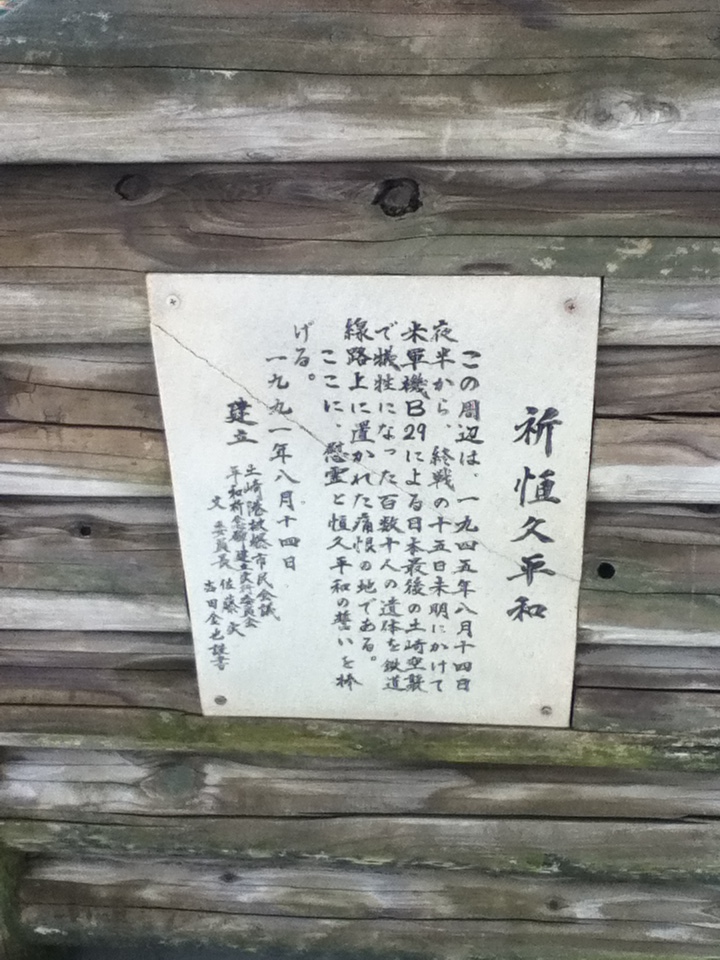 祈恒久平和
この周辺は、一九四五年八月十四日
夜半から、終戦の十五日未明にかけて
米軍機B29による日本最後の土崎空襲
で犠牲になった百数十人の遺体を鉄道
線路上に置かれた痛恨の地である。
ここに、慰霊と恒久平和の誓いを捧
げる。
一九九一年八月十四日
建立
土崎港被爆市民会議
平和祈念碑建立実行委員会
委員長 佐藤
文 吉田金也謹書